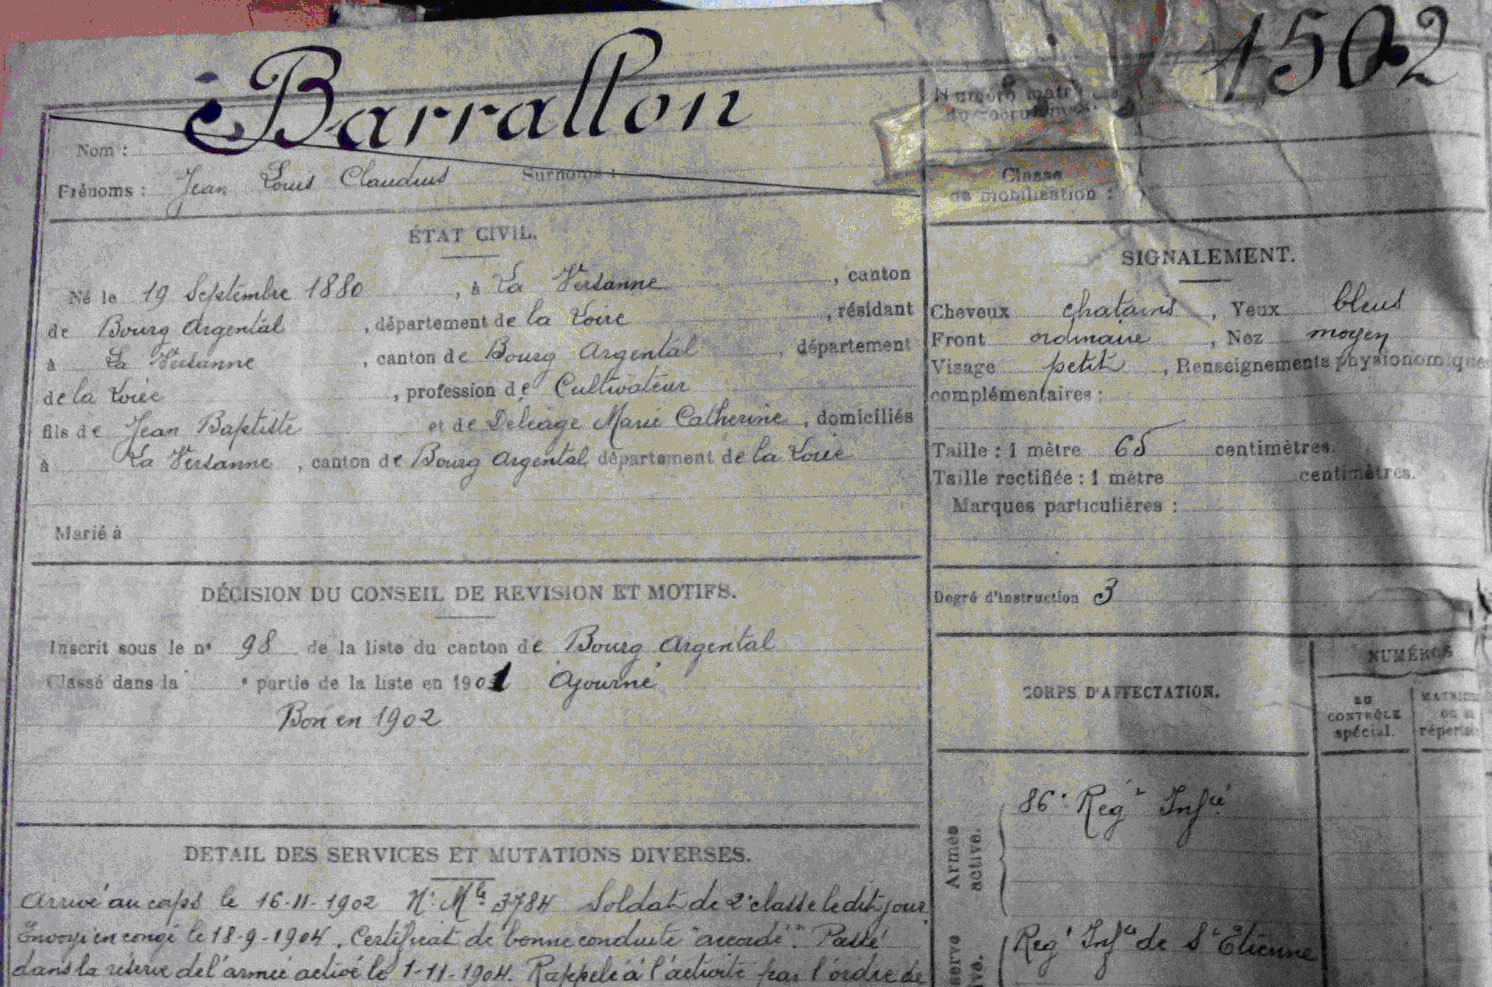 Barrallon
1502
Nom :
Numéro matr
du recrutem
Frénoms : Jean Louis Claudius Surnoms :
Classe
de mobilisation :
ÉTAT CIVIL.
Né le 19 Septembre 1880, à La Versanne, canton
de Bourg Argental, département de la Loire, résidant
à La Versanne, canton de Bourg Argental, département
de la Loire, profession de Cultivateur
fils de Jean Baptiste et de Deléage Marie Catherine, domiciliés
à La Versanne, canton de Bourg Argental, département de la Loire
Marié à
DÉCISION DU CONSEIL DE REVISION ET MOTIFS.
Inscrit sous le n° 98 de la liste du canton de Bourg Argental
Classé dans la partie de la liste en 1901 Ajourné
Bon en 1902
DETAIL DES SERVICES ET MUTATIONS DIVERSES.
Arrivé au corps le 16-11-1902 N° Mle 3784 Soldat de 2e classe le dit jour
Envoyé en congé le 18-9-1904. Certificat de bonne conduite "accordé". Passé
dans la réserve de l'armée active le 1-11-1904. Rappelé à l'activité par l'ordre de
SIGNALEMENT.
Cheveux chatains, Yeux bleus
Front ordinaire, Nez moyen
Visage petit, Renseignements physionomiques
complémentaires :
Taille : 1 mètre 65 centimètres.
Taille rectifiée : 1 mètre centimètres.
Marques particulières :
Degré d'instruction 3
CORPS D'AFFECTATION.
NUMÉROS
au
CONTRÔLE
spécial.
MATRICU
ou au
répertoi
Armée
active.
86e Regt Infie
serve
ve.
Regt Infie de St Etienne